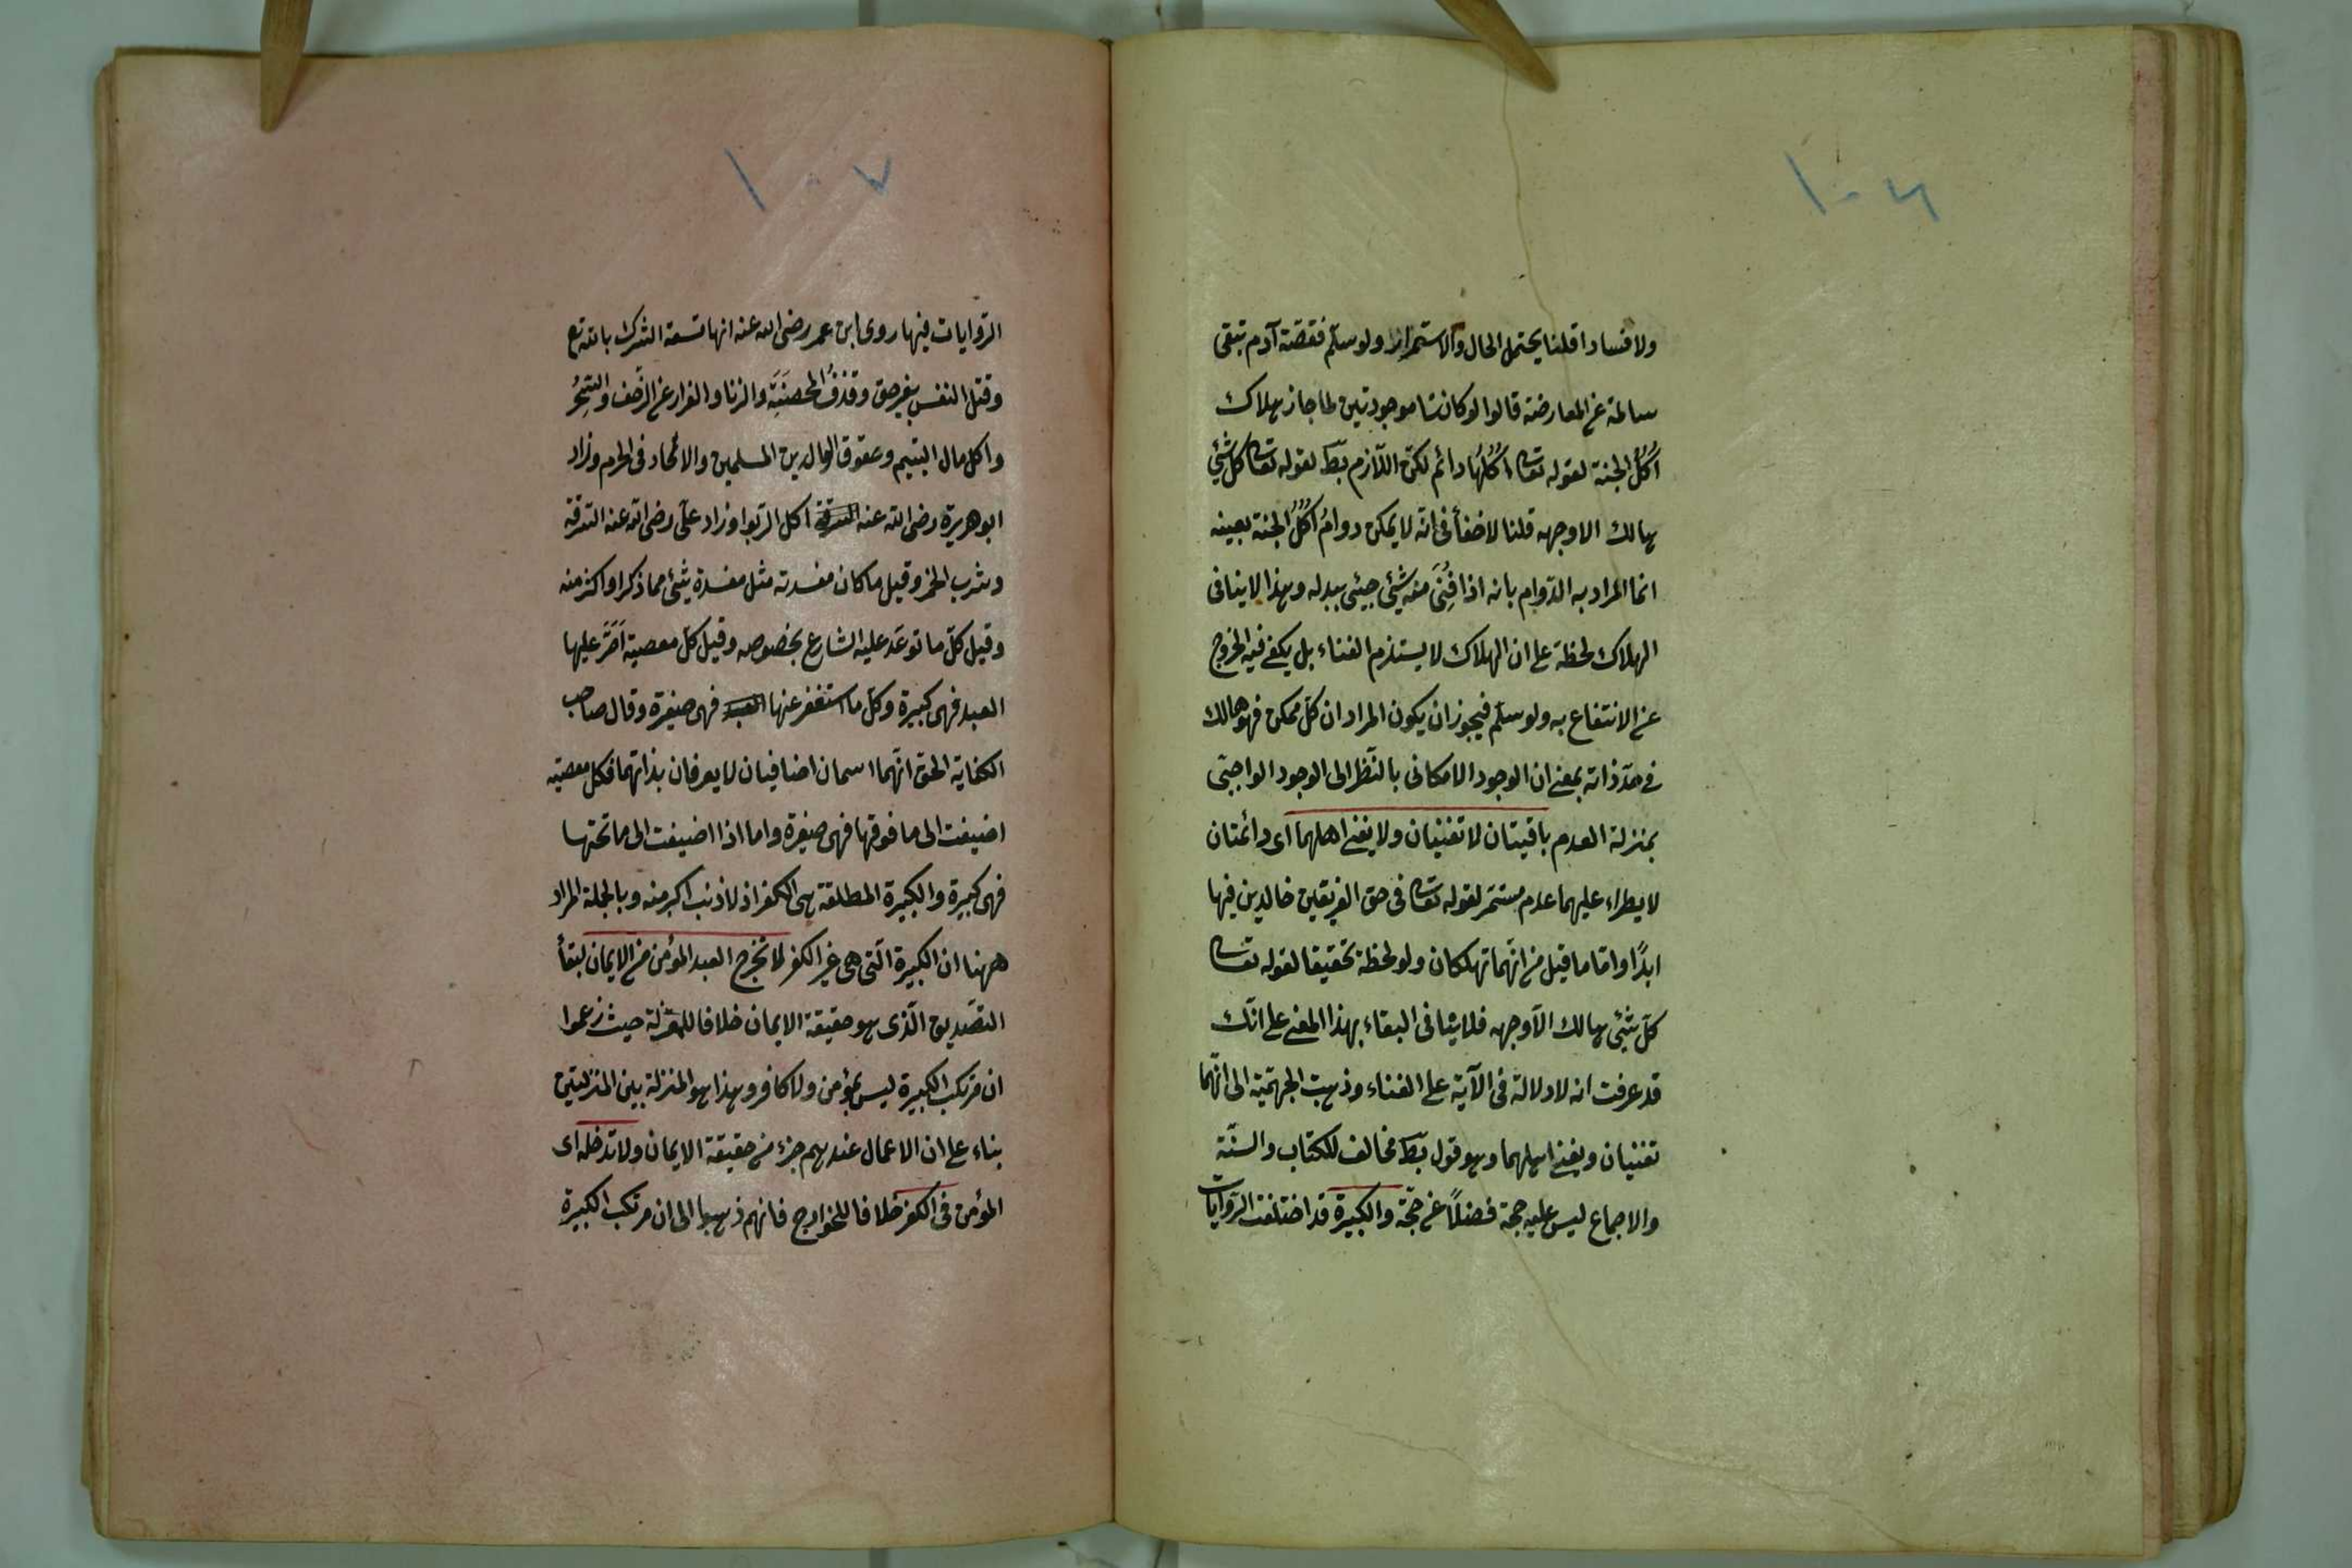 ١٠٦
ولا فسادا قلنا يحتمل الحال والاستمرار ولو سلّم فقصّة آدم تبقى
سالمة عن المعارضة قالوا لو كانتا موجودتين لما جاز هلاك
اُكُلُ الجنة لقوله تعالى اُكُلُها دائم لكن اللّازم بط لقوله تعالى كل شئ
هالك الا وجهه قلنا لا خفأ فى انّه لا يمكن دوامُ اُكُلُ الجنة بعينه
انما المراد به الدّوام بانه اذا فَنِىَ منه شئ جيئ ببدله وهذا لا ينافى
الهلاك لحظة على ان الهلاك لا يستلزم الفناء بل يكفى فيه الخروج
عن الانتفاع به ولو سلّم فيجوز ان يكون المراد ان كل ممكن فهو هالك
فى حدّ ذاته بمعنى ان الوجود الامكانى بالنّظر الى الوجود الواجبى
بمنزلة العدم باقيتان لا تفنيان ولا يفنى اهلهما اى دائمتان
لا يطراء عليهما عدم مستمر لقوله تعالى فى حق الفريقين خالدين فيها
ابدًا واما ما قيل من انّهما تهلكان ولو لحظة تحقيقا لقوله تعالى
كلّ شئ هالك الّا وجهه فلا ينافى البقاء بهذا المعنى على انّك
قد عرفت انه لا دلالة فى الآية على الفناء وذهبت الجهميّة الى انّهما
تفنيان ويفنى اهلهما وهو قول بط مخالف للكتاب والسنّة
والاجماع ليس عليه حجة فضلًا عن حجّة والكبيرة قد اختلفت الروايات
١٠٧
الرّوايات فيها روى ابن عمر رضى الله عنه انها تسعة الشرك بالله تع
وقتل النفس بغير حق وقذفُ المحصنَةَ والزنا والفرار عن الزّحف والسِّحُر
واكل مال اليتيم وعقوق الوالدين المسلمين والالحاد فى الحرم وزاد
ابو هريرة رضى الله عنه السرقة اكل الرّبوا وزاد علّى رضى الله عنه السّرقة
وشرب الخمر وقيل ما كان مفسدته مثل مفسدة شئ مما ذكر او اكثر منه
وقيل كلّ ما توعّد عليه الشارع بخصوصه وقيل كل معصية اَصَرّ عليها
العبد فهى كبيرة وكلّ ما استغفر عنها العبد فهى صغيرة وقال صاحب
الكفاية الحق انّهما اسمان اضافيان لا يعرفان بذاتهما فكل معصية
اضيفت الى ما فوقها فهى صغيرة واما اذا اضيفت الى ما تحتها
فهى كبيرة والكبيرة المطلقة هى الكفر اذ لا ذنب اكبر منه وبالجملة المراد
ههنا ان الكبيرة الّتى هى غير الكفر لا تخرج العبد المؤمن من الايمان لبقأ
التصّديق الّذى هو حقيقة الايمان خلافا للمعتزلة حيث زعموا
ان مرتكب الكبيرة ليس بمؤمن ولا كافر وهذا هو المنزلة بين المنزلتين
بناء على ان الاعمال عندهم جزء من حقيقة الايمان ولا تدخله اى
المؤمن فى الكفر خلافا للخوارج فانهم ذهبوا الى ان مرتكب الكبيرة